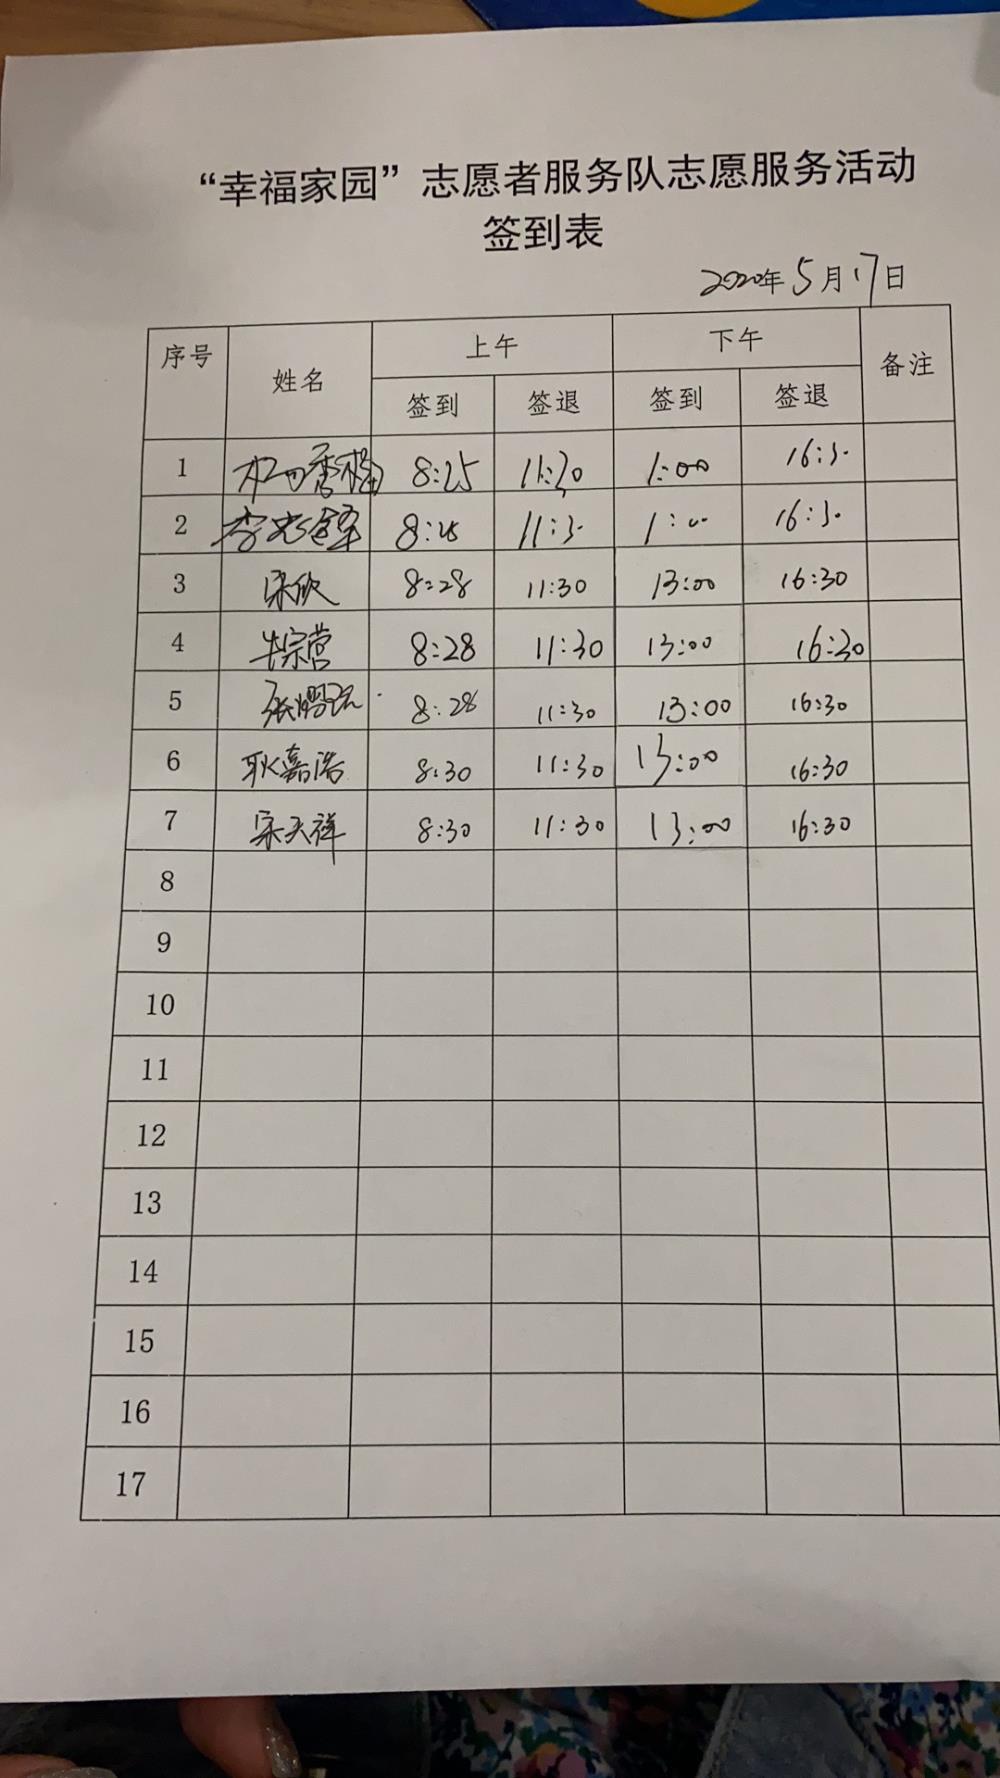 “幸福家园”志愿者服务队志愿服务活动
签到表
2020年5月17日
序号 姓名 上午 下午 备注
签到 签退 签到 签退
1 8:25 11:30 1:00 16:3.
2 李 8:28 11:3. 1:00 16:3.
3 宋欣 8:28 11:30 13:00 16:30
4 牛宗营 8:28 11:30 13:00 16:30
5 张 8:28 11:30 13:00 16:30
6 耿嘉浩 8:30 11:30 13:00 16:30
7 宋天祥 8:30 11:30 13:00 16:30
8
9
10
11
12
13
14
15
16
17